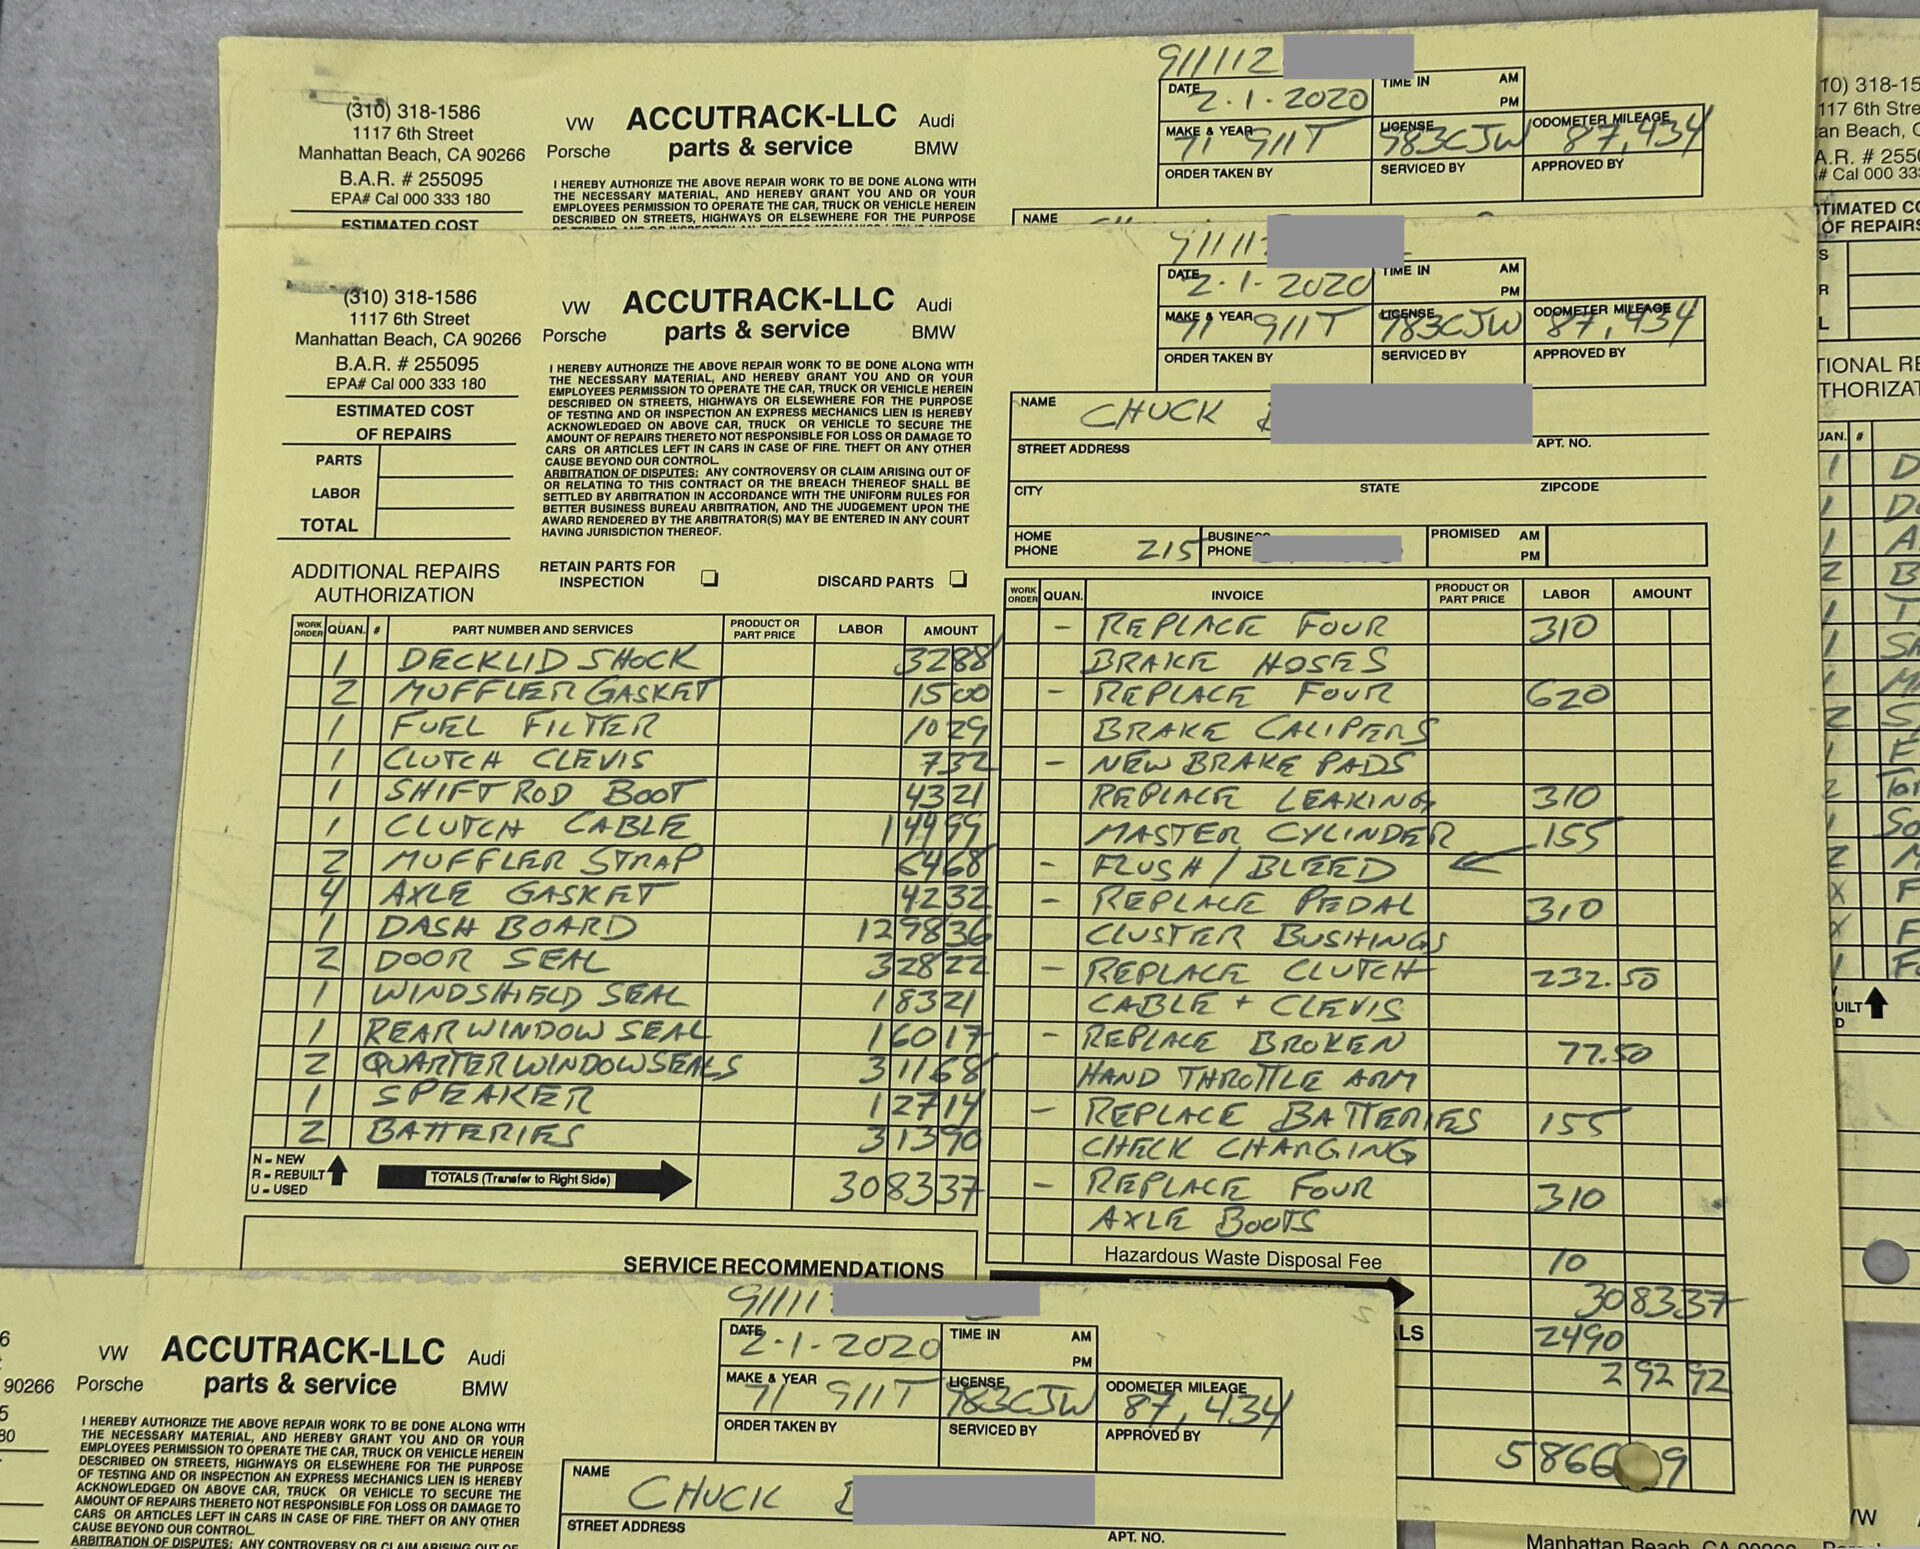 911112
(310) 318-1586
1117 6th Street
Manhattan Beach, CA 90266
B.A.R. # 255095
EPA# Cal 000 333 180
ESTIMATED COST
VW ACCUTRACK-LLC Audi
Porsche parts & service BMW
I HEREBY AUTHORIZE THE ABOVE REPAIR WORK TO BE DONE ALONG WITH
THE NECESSARY MATERIAL, AND HEREBY GRANT YOU AND OR YOUR
EMPLOYEES PERMISSION TO OPERATE THE CAR, TRUCK OR VEHICLE HEREIN
DESCRIBED ON STREETS, HIGHWAYS OR ELSEWHERE FOR THE PURPOSE
DATE 2-1-2020 TIME IN AM
PM
MAKE & YEAR 71 911T LICENSE 983CJW ODOMETER MILEAGE 87,434
ORDER TAKEN BY SERVICED BY APPROVED BY
NAME
91111
(310) 318-1586
1117 6th Street
Manhattan Beach, CA 90266
B.A.R. # 255095
EPA# Cal 000 333 180
ESTIMATED COST
OF REPAIRS
PARTS
LABOR
TOTAL
VW ACCUTRACK-LLC Audi
Porsche parts & service BMW
I HEREBY AUTHORIZE THE ABOVE REPAIR WORK TO BE DONE ALONG WITH
THE NECESSARY MATERIAL, AND HEREBY GRANT YOU AND OR YOUR
EMPLOYEES PERMISSION TO OPERATE THE CAR, TRUCK OR VEHICLE HEREIN
DESCRIBED ON STREETS, HIGHWAYS OR ELSEWHERE FOR THE PURPOSE
OF TESTING AND OR INSPECTION AN EXPRESS MECHANICS LIEN IS HEREBY
ACKNOWLEDGED ON ABOVE CAR, TRUCK OR VEHICLE TO SECURE THE
AMOUNT OF REPAIRS THERETO NOT RESPONSIBLE FOR LOSS OR DAMAGE TO
CARS OR ARTICLES LEFT IN CARS IN CASE OF FIRE. THEFT OR ANY OTHER
CAUSE BEYOND OUR CONTROL.
ARBITRATION OF DISPUTES: ANY CONTROVERSY OR CLAIM ARISING OUT OF
OR RELATING TO THIS CONTRACT OR THE BREACH THEREOF SHALL BE
SETTLED BY ARBITRATION IN ACCORDANCE WITH THE UNIFORM RULES FOR
BETTER BUSINESS BUREAU ARBITRATION, AND THE JUDGEMENT UPON THE
AWARD RENDERED BY THE ARBITRATOR(S) MAY BE ENTERED IN ANY COURT
HAVING JURISDICTION THEREOF.
DATE 2-1-2020 TIME IN AM
PM
MAKE & YEAR 71 911T LICENSE 983CJW ODOMETER MILEAGE 87,434
ORDER TAKEN BY SERVICED BY APPROVED BY
NAME CHUCK
STREET ADDRESS APT. NO.
CITY STATE ZIPCODE
HOME PHONE 215 BUSINESS PHONE PROMISED AM
PM
ADDITIONAL REPAIRS
AUTHORIZATION
RETAIN PARTS FOR
INSPECTION
DISCARD PARTS
WORK ORDER QUAN. # PART NUMBER AND SERVICES PRODUCT OR PART PRICE LABOR AMOUNT
1 DECKLID SHOCK 3288
2 MUFFLER GASKET 1500
1 FUEL FILTER 1029
1 CLUTCH CLEVIS 732
1 SHIFT ROD BOOT 4321
1 CLUTCH CABLE 14499
2 MUFFLER STRAP 6468
4 AXLE GASKET 4232
1 DASH BOARD 129836
2 DOOR SEAL 32822
1 WINDSHIELD SEAL 18321
1 REAR WINDOW SEAL 16017
2 QUARTER WINDOW SEALS 31168
1 SPEAKER 12714
2 BATTERIES 31390
N = NEW
R = REBUILT
U = USED
TOTALS (Transfer to Right Side) 308337
SERVICE RECOMMENDATIONS
WORK ORDER QUAN. INVOICE PRODUCT OR PART PRICE LABOR AMOUNT
- REPLACE FOUR 310
BRAKE HOSES
- REPLACE FOUR 620
BRAKE CALIPERS
- NEW BRAKE PADS
REPLACE LEAKING 310
MASTER CYLINDER 155
- FLUSH / BLEED
- REPLACE PEDAL 310
CLUSTER BUSHINGS
- REPLACE CLUTCH 232.50
CABLE + CLEVIS
- REPLACE BROKEN 77.50
HAND THROTTLE ARM
- REPLACE BATTERIES 155
CHECK CHARGING
- REPLACE FOUR 310
AXLE BOOTS
Hazardous Waste Disposal Fee 10
308337
ALS 2490
29292
5866 9
91111
90266
VW ACCUTRACK-LLC Audi
Porsche parts & service BMW
I HEREBY AUTHORIZE THE ABOVE REPAIR WORK TO BE DONE ALONG WITH
THE NECESSARY MATERIAL, AND HEREBY GRANT YOU AND OR YOUR
EMPLOYEES PERMISSION TO OPERATE THE CAR, TRUCK OR VEHICLE HEREIN
DESCRIBED ON STREETS, HIGHWAYS OR ELSEWHERE FOR THE PURPOSE
OF TESTING AND OR INSPECTION AN EXPRESS MECHANICS LIEN IS HEREBY
ACKNOWLEDGED ON ABOVE CAR, TRUCK OR VEHICLE TO SECURE THE
AMOUNT OF REPAIRS THERETO NOT RESPONSIBLE FOR LOSS OR DAMAGE TO
CARS OR ARTICLES LEFT IN CARS IN CASE OF FIRE. THEFT OR ANY OTHER
CAUSE BEYOND OUR CONTROL.
ARBITRATION OF DISPUTES: ANY CONTROVERSY OR CLAIM ARISING OUT OF
DATE 2-1-2020 TIME IN AM
PM
MAKE & YEAR 71 911T LICENSE 983CJW ODOMETER MILEAGE 87,434
ORDER TAKEN BY SERVICED BY APPROVED BY
NAME CHUCK
STREET ADDRESS APT. NO.
10) 318-15
117 6th Stre
an Beach, C
A.R. # 2550
# Cal 000 333
TIMATED CO
OF REPAIRS
TIONAL RE
THORIZAT
UAN. #
UILT
VW
Manhattan Beach, CA 90266